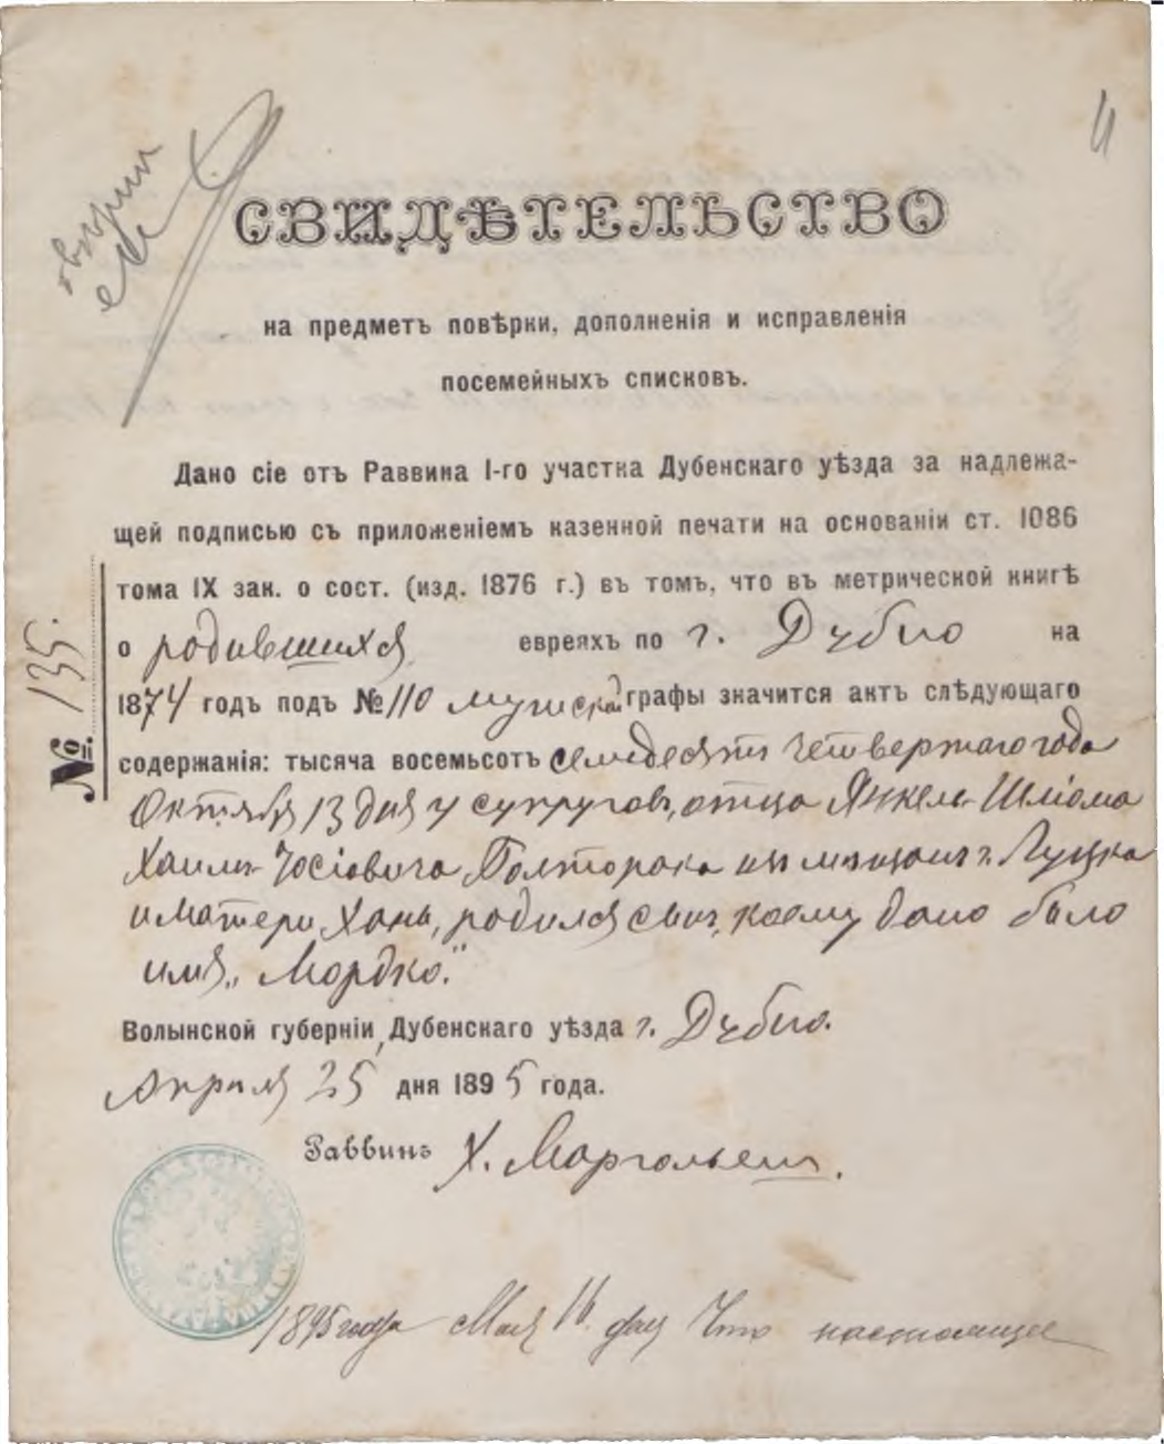 4
СВИДѢТЕЛЬСТВО
на предметъ повѣрки, дополненія и исправленія
посемейныхъ списковъ.
Дано сіе отъ Раввина I-го участка Дубенскаго уѣзда за надлежа-
щей подписью съ приложеніемъ казенной печати на основаніи ст. 1086
тома IX зак. о сост. (изд. 1876 г.) въ томъ, что въ метрической книгѣ
о родившихся евреяхъ по г. Дубно на
1874 годъ подъ № 110 мужской графы значится актъ слѣдующаго
содержанія: тысяча восемьсотъ семьдесятъ четвертаго года
Октября 13 дня у супруговъ, отца Янкель Шліома
Хаимъ Іосіовича Полторака мѣщан г. Луцка
и матери Хань, родился сынъ, коему дано было
имя „Мордко."
Волынской губерніи, Дубенскаго уѣзда г. Дубно.
Апреля 25 дня 1895 года.
Раввинъ Х. Маргольеш.
№ 135.
1895 года Мая 16 дня Что настоящее